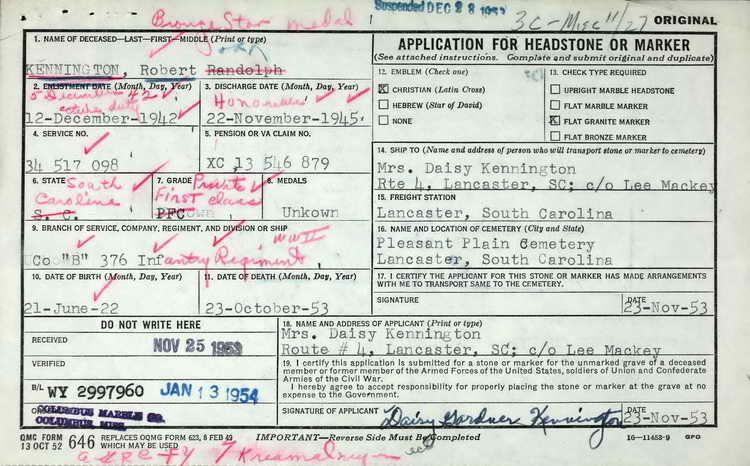 Bronze Star medal
Suspended DEC 28 1953
3C-Misc 11/27
ORIGINAL
1. NAME OF DECEASED—LAST—FIRST—MIDDLE (Print or type)
John
KENNINGTON, Robert Randolph
2. ENLISTMENT DATE (Month, Day, Year)
5 December 42
active duty
12-December-1942
3. DISCHARGE DATE (Month, Day, Year)
Honorable
22-November-1945
4. SERVICE NO.
34 517 098
5. PENSION OR VA CLAIM NO.
XC 13 546 879
6. STATE
South Carolina
S. C.
7. GRADE
Private First class
PFC
8. MEDALS
Unkown
9. BRANCH OF SERVICE, COMPANY, REGIMENT, AND DIVISION OR SHIP
WWII
Co "B" 376 Infantry Regiment
10. DATE OF BIRTH (Month, Day, Year)
21-June-22
11. DATE OF DEATH (Month, Day, Year)
23-October-53
APPLICATION FOR HEADSTONE OR MARKER
(See attached instructions. Complete and submit original and duplicate)
12. EMBLEM (Check one)
X CHRISTIAN (Latin Cross)
HEBREW (Star of David)
NONE
13. CHECK TYPE REQUIRED
UPRIGHT MARBLE HEADSTONE
FLAT MARBLE MARKER
X FLAT GRANITE MARKER
FLAT BRONZE MARKER
14. SHIP TO (Name and address of person who will transport stone or marker to cemetery)
Mrs. Daisy Kennington
Rte 4, Lancaster, SC; c/o Lee Mackey
15. FREIGHT STATION
Lancaster, South Carolina
16. NAME AND LOCATION OF CEMETERY (City and State)
Pleasant Plain Cemetery
Lancaster, South Carolina
17. I CERTIFY THE APPLICANT FOR THIS STONE OR MARKER HAS MADE ARRANGEMENTS
WITH ME TO TRANSPORT SAME TO THE CEMETERY.
SIGNATURE
DATE
23-Nov-53
DO NOT WRITE HERE
RECEIVED
NOV 25 1953
VERIFIED
B/L WY 2997960
JAN 13 1954
COLUMBUS MARBLE CO.
COLUMBUS, MISS.
18. NAME AND ADDRESS OF APPLICANT (Print or type)
Mrs. Daisy Kennington
Route # 4, Lancaster, SC; c/o Lee Mackey
19. I certify this application is submitted for a stone or marker for the unmarked grave of a deceased
member or former member of the Armed Forces of the United States, soldiers of Union and Confederate
Armies of the Civil War.
I hereby agree to accept responsibility for properly placing the stone or marker at the grave at no
expense to the Government.
SIGNATURE OF APPLICANT
Daisy Gardner Kennington
DATE
23-Nov-53
QMC FORM
13 OCT 52
646
REPLACES OQMG FORM 623, 8 FEB 49
WHICH MAY BE USED
IMPORTANT—Reverse Side Must Be Completed
16—11453-9 GPO